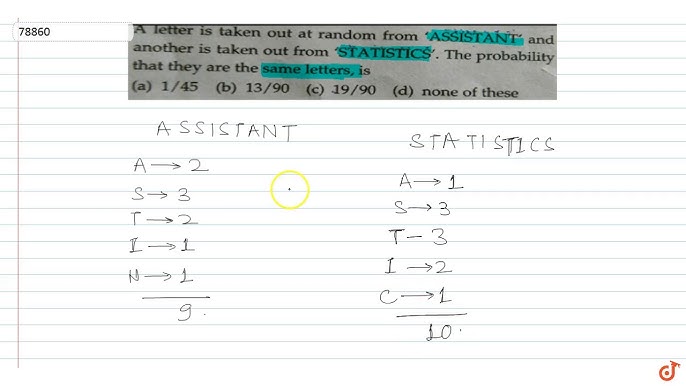 78860
A letter is taken out at random from 'ASSISTANT' and
another is taken out from 'STATISTICS'. The probability
that they are the same letters, is
(a) 1/45 (b) 13/90 (c) 19/90 (d) none of these
ASSISTANT
A → 2
S → 3
T → 2
I → 1
N → 1
9.
STATISTICS
A → 1
S → 3
T - 3
I → 2
C → 1
10.